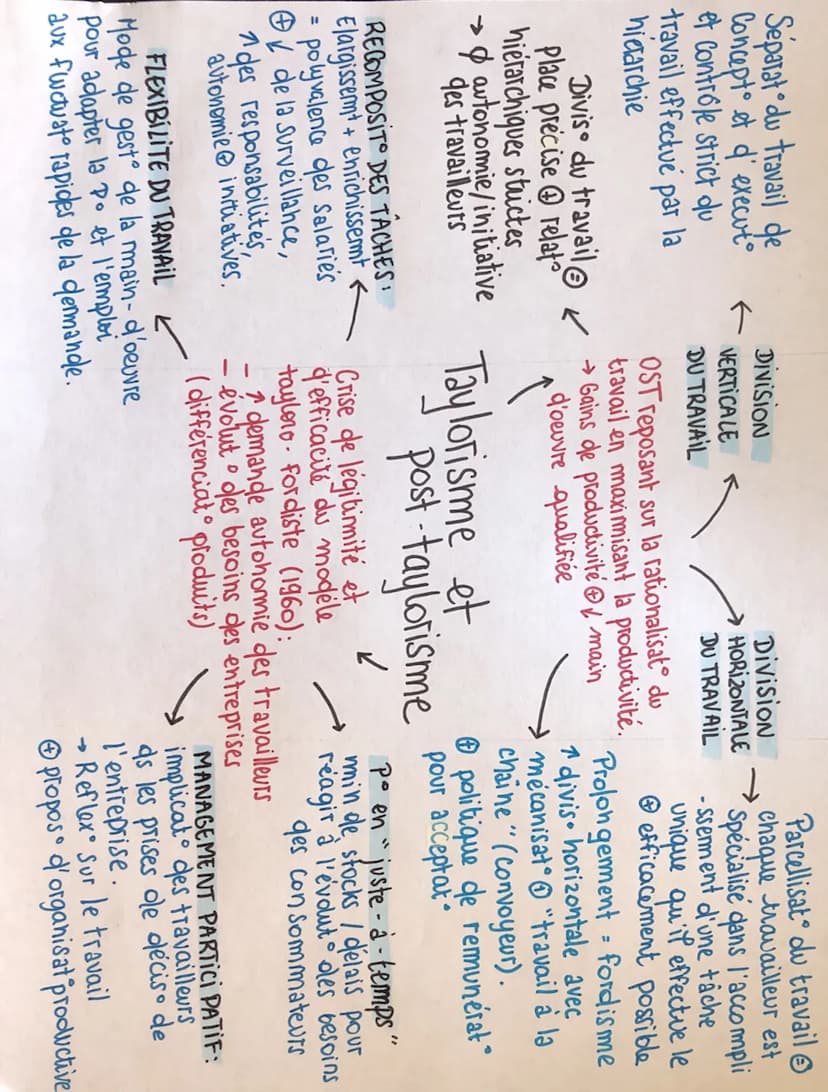 Séparat° du travail de
concept° et d'execut°
et contrôle strict du
travail effectué par la
hiérarchie
DIVISION
VERTICALE
DU TRAVAIL
DIVISION
HORIZONTALE
DU TRAVAIL
→ Parcellisat° du travail =
chaque travailleur est
spécialisé dans l'accompli
-ssement d'une tâche
unique qu'il effectue le
⊕ efficacement possible
OST reposant sur la rationalisat° du
travail en maximisant la productivité.
→ Gains de productivité ⊕ ↓ main
d'oeuvre qualifiée
Divis° du travail =
place précise ⊕ relat°
hiérarchiques strictes
→ ∅ autonomie/initiative
des travailleurs
Prolongement = fordisme
↑ divis° horizontale avec
mécanisat° ⊕ "travail à la
chaîne" (convoyeur).
⊕ politique de remunérat°
pour acceptat°
Taylorisme et
post-taylorisme
RECOMPOSIT° DES TÂCHES :
Elargissemt + enrichissemt
= polyvalence des salariés
⊕ ↓ de la surveillance,
↑ des responsabilités,
autonomie ⊕ initiatives.
Crise de légitimité et
d'efficacité du modèle
tayloro-fordiste (1960) :
- ↑ demande autonomie des travailleurs
- évolut° des besoins des entreprises
(différenciat° produits)
P° en "juste-à-temps"
min de stocks / délais pour
réagir à l'évolut° des besoins
des consommateurs
FLEXIBILITE DU TRAVAIL
Mode de gest° de la main-d'oeuvre
pour adapter la P° et l'emploi
aux fluctuat° rapides de la demande.
MANAGEMENT PARTICIPATIF :
implicat° des travailleurs
ds les prises de décis° de
l'entreprise.
→ Reflex° sur le travail
⊕ propos° d'organisat° productive